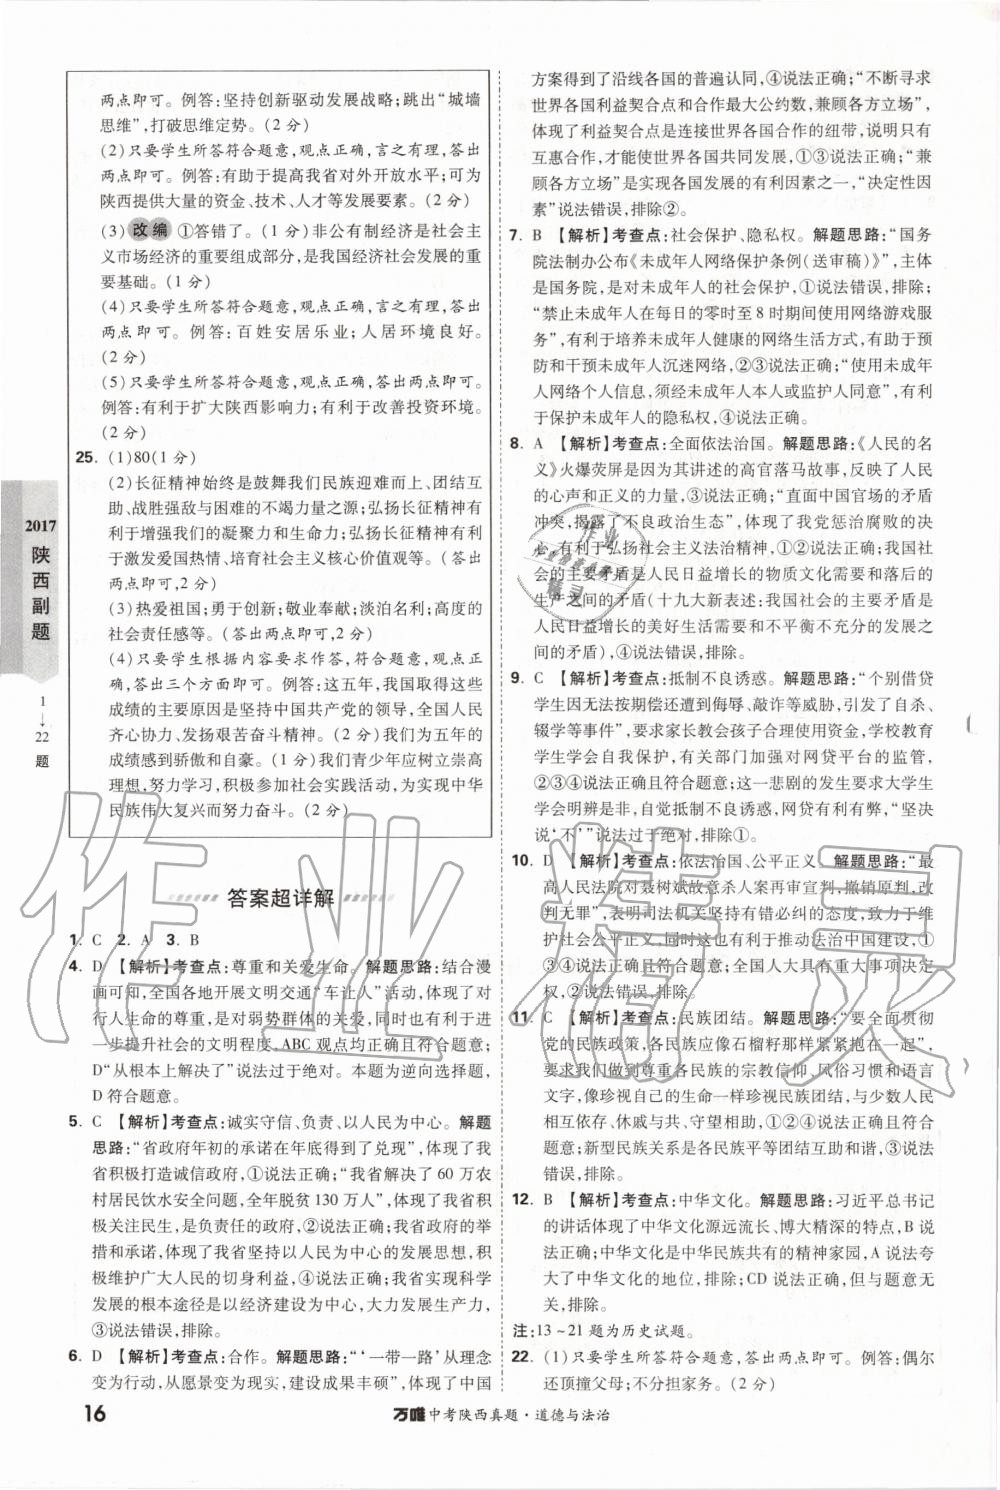 两点即可。例答:坚持创新驱动发展战略;跳出“城墙
思维”,打破思维定势。(2分)
(2)只要学生所答符合题意,观点正确,言之有理,答出
两点即可。例答:有助于提高我省对外开放水平;可为
陕西提供大量的资金、技术、人才等发展要素。(2分)
(3)改编 ①答错了。(1分)非公有制经济是社会主
义市场经济的重要组成部分,是我国经济社会发展的重要
基础。(1分)
(4)只要学生所答符合题意,观点正确,言之有理,答出
两点即可。例答:百姓安居乐业;人居环境良好。
(2分)
(5)只要学生所答符合题意,答出两点即可。
例答:有利于扩大陕西影响力;有利于改善投资环境。
(2分)
25. (1)80(1分)
(2)长征精神始终是鼓舞我们民族迎难而上、团结互
助、战胜强敌与困难的不竭力量之源;弘扬长征精神有
利于增强我们的凝聚力和生命力;弘扬长征精神有利
于激发爱国热情、培育社会主义核心价值观等。(答出
两点即可,2分)
(3)热爱祖国;勇于创新;敬业奉献;淡泊名利;高度的
社会责任感等。(答出两点即可,2分)
(4)只要学生根据内容要求作答,符合题意,观点正确,
答出三个方面即可。例答:这五年,我国取得这些
成绩的主要原因是坚持中国共产党的领导,全国人民
齐心协力、发扬艰苦奋斗精神。(2分)我们为五年的
成就感到骄傲和自豪。(1分)我们青少年应树立崇高
理想,努力学习,积极参加社会实践活动,为实现中华
民族伟大复兴而努力奋斗。(2分)
答案超详解
1. C 2. A 3. B
4. D 【解析】考查点:尊重和关爱生命。解题思路:结合漫
画可知,全国各地开展文明交通“车让人”活动,体现了对
行人生命的尊重,是对弱势群体的关爱,同时也有利于进
一步提升社会的文明程度,ABC观点均正确且符合题意;
D“从根本上解决了”说法过于绝对。本题为逆向选择题,
D符合题意。
5. C 【解析】考查点:诚实守信、负责、以人民为中心。解题
思路:“省政府年初的承诺在年底得到了兑现”,体现了我
省积极打造诚信政府,①说法正确;“我省解决了60万农
村居民饮水安全问题,全年脱贫130万人”,体现了我省积
极关注民生,是负责任的政府,②说法正确;我省政府的举
措和承诺,体现了我省坚持以人民为中心的发展思想,积
极维护广大人民的切身利益,④说法正确;我省实现科学
发展的根本途径是以经济建设为中心,大力发展生产力,
③说法错误,排除。
6. D 【解析】考查点:合作。解题思路:“‘一带一路’从理念
变为行动,从愿景变为现实,建设成果丰硕”,体现了中国
方案得到了沿线各国的普遍认同,④说法正确;“不断寻求
世界各国利益契合点和合作最大公约数,兼顾各方立场”,
体现了利益契合点是连接世界各国合作的纽带,说明只有
互惠合作,才能使世界各国共同发展,①③说法正确;“兼
顾各方立场”是实现各国发展的有利因素之一,“决定性因
素”说法错误,排除②。
7. B 【解析】考查点:社会保护、隐私权。解题思路:“国务
院法制办公布《未成年人网络保护条例(送审稿)》”,主体
是国务院,是对未成年人的社会保护,①说法错误,排除;
“禁止未成年人在每日的零时至8时期间使用网络游戏服
务”,有利于培养未成年人健康的网络生活方式,有助于预
防和干预未成年人沉迷网络,②③说法正确;“使用未成年
人网络个人信息,须经未成年人本人或监护人同意”,有利
于保护未成年人的隐私权,④说法正确。
8. A 【解析】考查点:全面依法治国。解题思路:《人民的名
义》火爆荧屏是因为其讲述的高官落马故事,反映了人民
的心声和正义的力量,③说法正确;“直面中国官场的矛盾
冲突,揭露了不良政治生态”,体现了我党惩治腐败的决
心,有利于弘扬社会主义法治精神,①②说法正确;我国社会
的主要矛盾是人民日益增长的物质文化需要同落后的社会
生产之间的矛盾(十九大新表述:我国社会的主要矛盾是
人民日益增长的美好生活需要和不平衡不充分的发展之
间的矛盾),④说法错误,排除。
9. C 【解析】考查点:抵制不良诱惑。解题思路:“个别借贷
学生因无法按期偿还遭到侮辱、敲诈等威胁,引发了自杀、
辍学等事件”,要求家长教会孩子合理使用资金,学校教育
学生学会自我保护,有关部门加强对网贷平台的监管,
②③④说法正确且符合题意;这一悲剧的发生要求大学生
学会明辨是非,自觉抵制不良诱惑,网贷有利有弊,“坚决
说‘不’”说法过于绝对,排除①。
10. D 【解析】考查点:依法治国、公平正义。解题思路:“最
高人民法院对聂树斌故意杀人案再审宣判,撤销原判,改
判无罪”,表明司法机关坚持有错必纠的态度,致力于维护
社会公平正义,同时这也有利于推动法治中国建设,①
③④说法正确且符合题意;全国人大具有重大事项决定
权,②说法错误,排除。
11. C 【解析】考查点:民族团结。解题思路:“要全面贯彻
党的民族政策,各民族应像石榴籽那样紧紧抱在一起”,
要求我们尊重各民族的宗教信仰、风俗习惯和语言
文字,像珍视自己的生命一样珍视民族团结,与少数人民
相互依存、休戚与共、守望相助,①②④说法正确且符合
题意;新型民族关系是各民族平等团结互助和谐,③说法
错误,排除。
12. B 【解析】考查点:中华文化。解题思路:习近平总书记
的讲话体现了中华文化源远流长、博大精深的特点,B说
法正确;中华文化是中华民族共有的精神家园,A说法夸
大了中华文化的地位,排除;CD说法正确,但与题意无
关,排除。
注:13~21题为历史试题。
22. (1)只要学生所答符合题意,答出两点即可。例答:偶尔
还顶撞父母;不分担家务。(2分)
2017
陕西副题
1
↓
22
题
16
万唯中考陕西真题·道德与法治
作业精灵